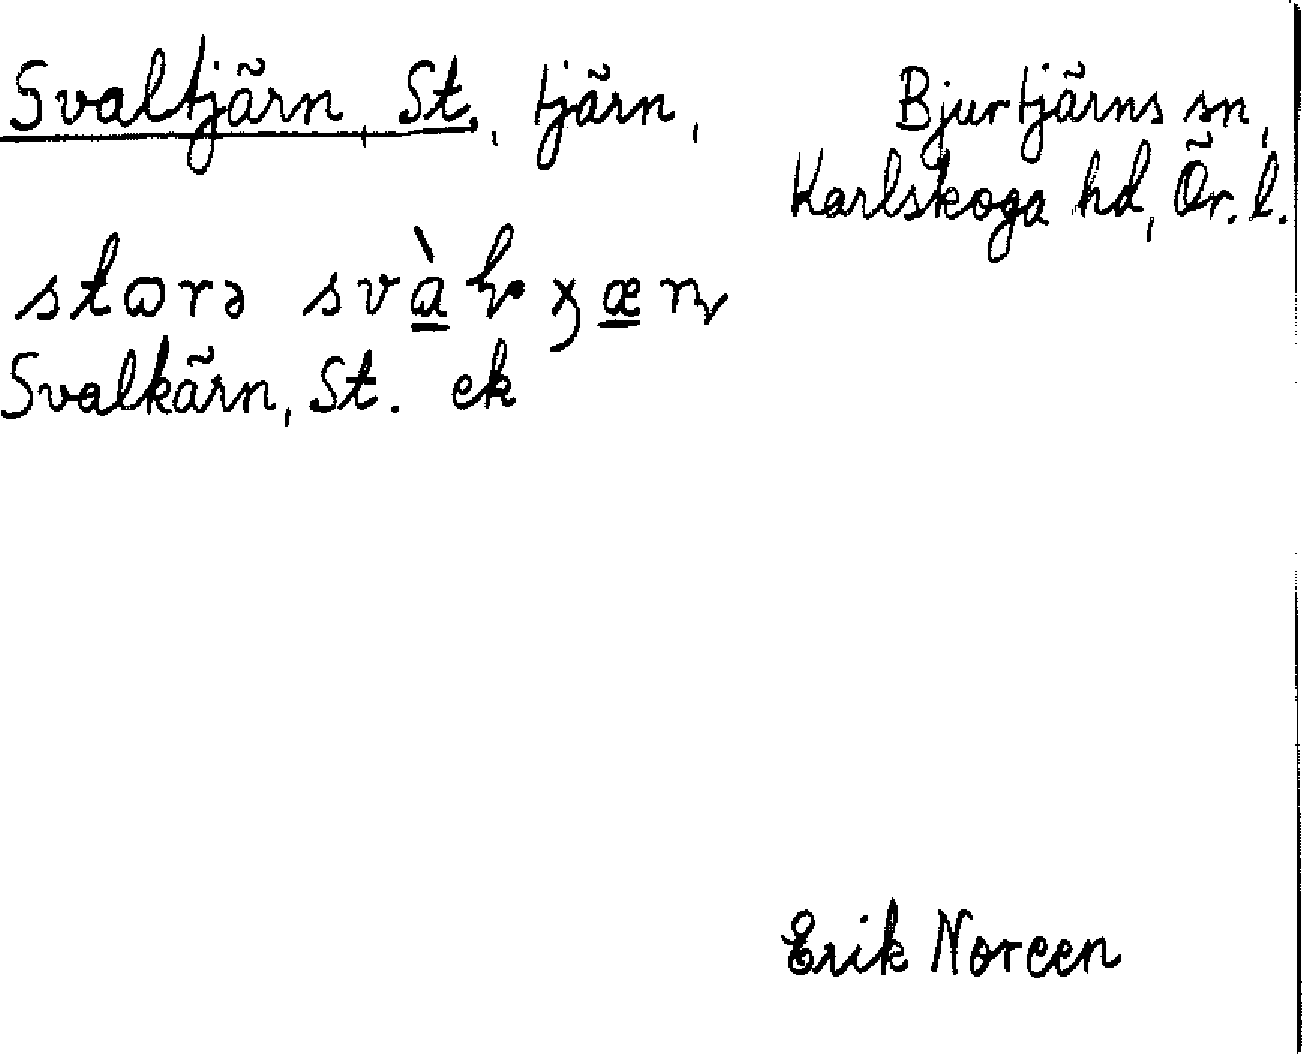 Svaltjärn, St., tjärn, Bjurtjärns sn,
Karlskoga hd, Ör. l.
Svalkärn, St. ek
Erik Noreen